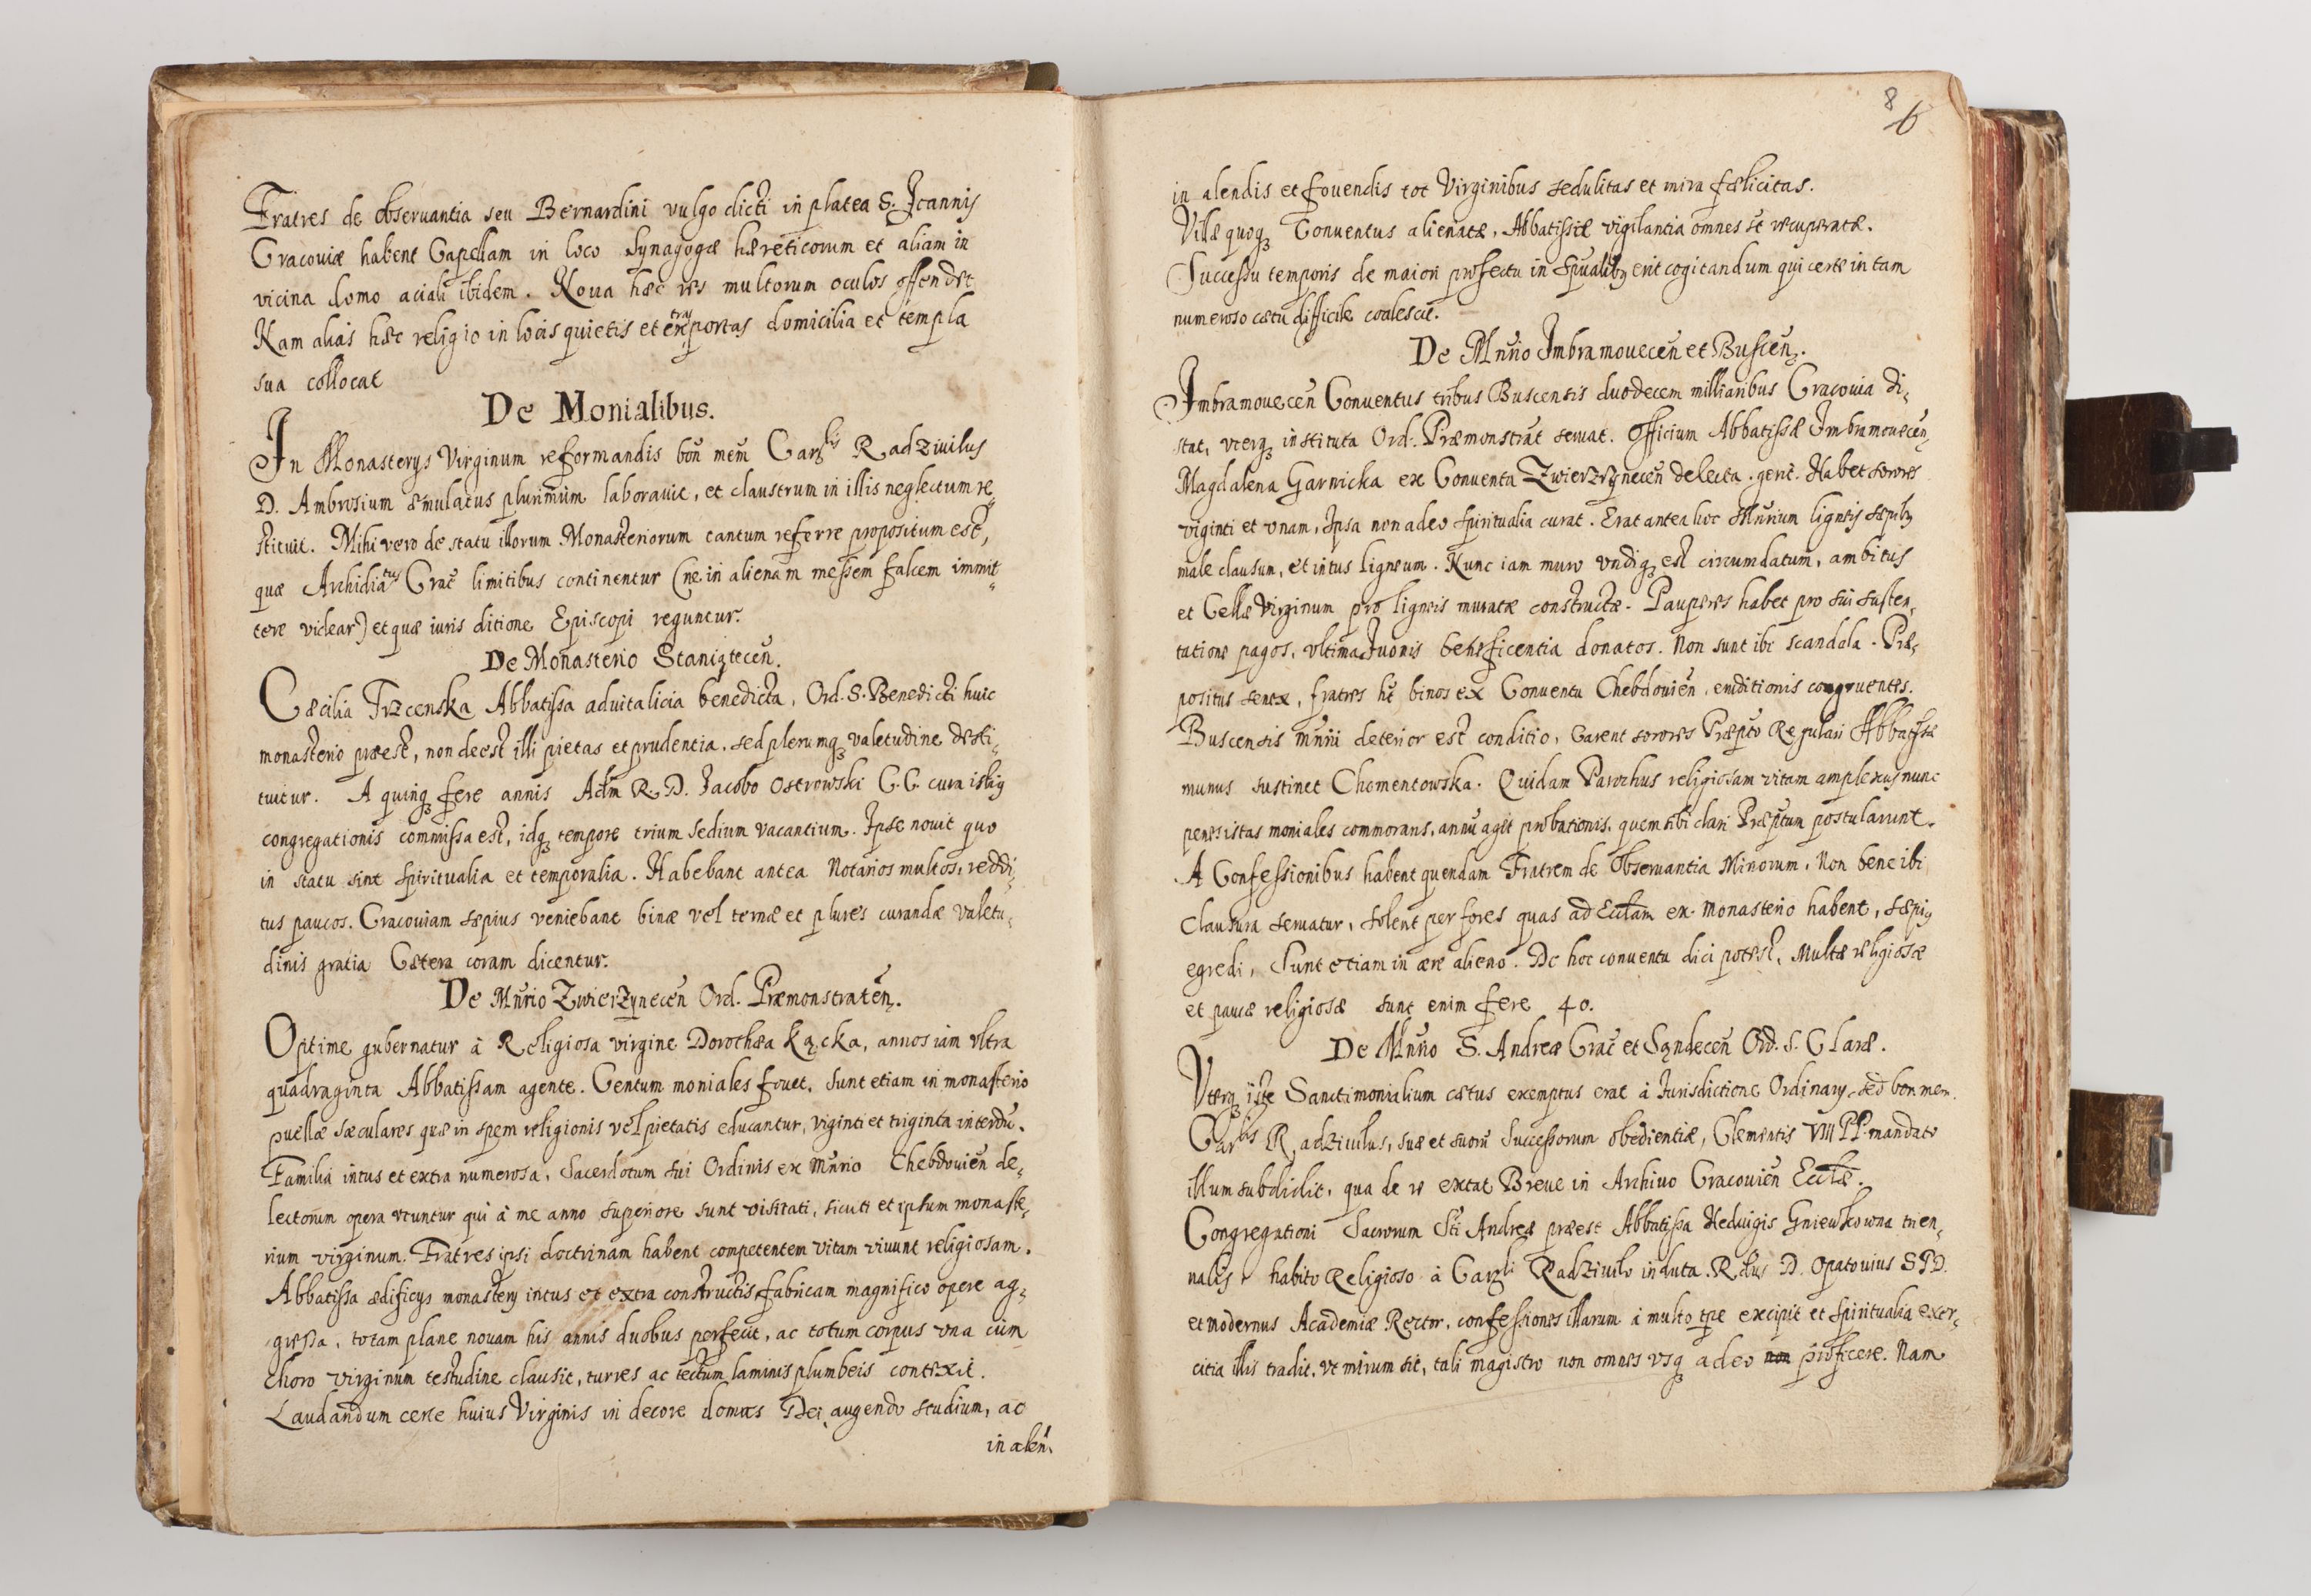 Fratres de obseruantia seu Bernardini vulgo dicti in platea S. Joannis
Cracouiæ habent Capellam in loco Synagogæ hæreticorum et aliam in
vicina domo aciali ibidem. Noua hæc res multorum oculos offendet
Nam alias hæc religio in locis quietis et extra portas domicilia et templa
sua collocat
De Monialibus.
In Monasterys Virginum reformandis bon̄ mem̄ Carlis Radziuilus
D. Ambrosium æmulatus plurimùm laborauit, et claustrum in illis neglectum re-
stituit. Mihi vero de statu illorum Monasteriorum tantum referre propositum est,
quæ Archidiatus Crac̄ limitibus continentur (ne in alienam messem falcem immit-
tere videar) et quæ iuris ditione Episcopi reguntur.
De Monasterio Staniątecen̄.
Cæcilia Trzcenska Abbatissa aduitalicia benedicta, Ord. S. Benedicti huic
monasterio præest, non deest illi pietas et prudentia, sed plerumqꝫ valetudine desti-
tuitur. A quinqꝫ fere annis Adm̄ R. D. Jacobo Ostrowski C. C. cura istiꝰ
congregationis commissa est, idqꝫ tempore trium Sedium vacantium. Ipse nouit quo
in statu sint spiritualia et temporalia. Habebant antea Notarios multos, reddi-
tus paucos. Cracouiam sæpius veniebant binæ vel ternæ et plures curandæ valetu-
dinis gratia Cætera coram dicentur.
De Mn̄rio Zwierzynecen̄ Ord. Præmonstraten̄.
Optime gubernatur à Religiosa virgine Dorothæa Kącka, annos iam vltra
quadraginta Abbatissam agente. Centum moniales fouet. Sunt etiam in monasterio
puellæ sæculares quæ in spem religionis vel pietatis educantur, viginti et triginta interdū.
Familia intus et extra numerosa. Sacerdotum sui Ordinis ex Mn̄rio Chebdouien̄ de-
lectorum opera vtuntur qui à me anno superiore sunt visitati, sicuti et ipsum monaste-
rium virginum. Fratres ipsi doctrinam habent competentem vitam viuunt religiosam.
Abbatissa ædificys monastery intus et extra constructis fabricam magnifico opere ag-
gressa, totam plane nouam his annis duobus perfecit, ac totum corpus vna cùm
choro virginum testudine clausit, turres ac tectum laminis plumbeis contexit.
Laudandum certe huius Virginis in decore domus Dei augendo studium, ac
in alen-
8
6
in alendis et fouendis tot Virginibus sedulitas et mira fælicitas.
Villæ quoqꝫ Conuentus alienatæ, Abbatissæ vigilantia omnes st̄ recuperatæ.
Successu temporis de maiori profectu in spūalibꝫ erit cogitandum qui certe in tam
numeroso cætu difficile coalescit.
De Mn̄rio Imbramouecen̄ et Buscen̄.
Imbramouecen̄ Conuentus tribus Buscensis duodecem milliaribus Cracouia di-
stat, vterqꝫ instituta Ord. Præmonstrat̄ seruat. Officium Abbatissæ Imbramouecen̄
Magdalena Garnicka ex Conuentu Zwierzynecen̄ delecta gerit. Habet sorores
viginti et vnam, Ipsa non adeo spiritualia curat. Erat antea hoc Mn̄rium ligneis sæpibꝫ
male clausum, et intus ligneum. Nunc iam muro vndiqꝫ est circumdatum, ambitus
et Cellæ Virginum pro ligneis muratæ constructæ. Pauperes habet pro sui susten-
tatione pagos, vltima Iuonis beneficentia donatos. Non sunt ibi scandala. Præ-
positus senex, fratres ht̄ binos ex Conuentu Chebdouien̄, eruditionis congruentes.
Buscensis mn̄rii deterior est conditio, Carent sorores Præpto Regulari Abbatissæ
munus sustinet Chomentowska. Quidam Parochus religiosam vitam amplexus nunc
penes istas moniales commorans, annū agit probationis, quem sibi dari Præptum postularunt.
A Confessionibus habent quendam Fratrem de Obseruantia Minorum. Non bene ibi
Clausura seruatur, solent per fores quas ad Eccłam ex Monasterio habent, sæpiꝰ
egredi, Sunt etiam in ære alieno. De hoc conuentu dici potest, Multæ religiosæ
et paucæ religiosæ sunt enim fere 40.
De Mn̄rio S. Andreæ Crac̄ et Sądecen̄ Ord. S. Claræ.
Vterqꝫ iste Sanctimonialium cætus exemptus erat à Jurisdictione Ordinary, sed bon. mem.
Carlis Radziuilus, suæ et suorū Successorum obedientiæ, Clementis VIII PP. mandato
illum subdidit, qua de re extat Breue in Archiuo Cracouien̄ Eccłæ.
Congregationi Sacrorum Sti Andreæ præest Abbatissa Heduigis Gniewkowna trien-
nalis, habito Religioso à Carli Radziuilo induta. Rdus D. Opatouius S T D.
et modernus Academiæ Rector, confessiones illarum à multo tp̄e excipit et spiritualia exer-
citia illis tradit, vt mirum sit, tali magistro non omnes vsqꝫ adeo non proficere. Nam